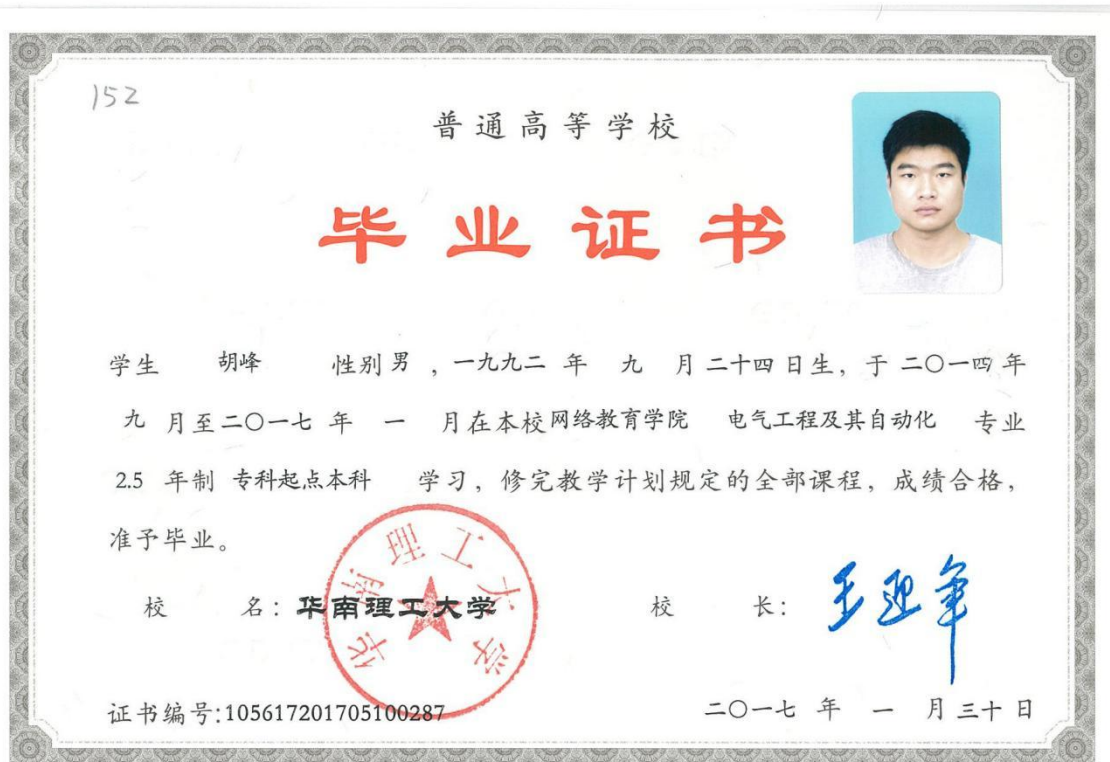 152
普通高等学校
毕业证书
学生 胡峰 性别 男 ，一九九二 年 九 月 二十四 日生，于 二〇一四 年
九 月至 二〇一七 年 一 月在本校 网络教育学院 电气工程及其自动化 专业
2.5 年制 专科起点本科 学习，修完教学计划规定的全部课程，成绩合格，
准予毕业。
华南理工大学
校 名：华南理工大学 校 长：王迎军
证书编号:105617201705100287 二〇一七 年 一 月 三十 日